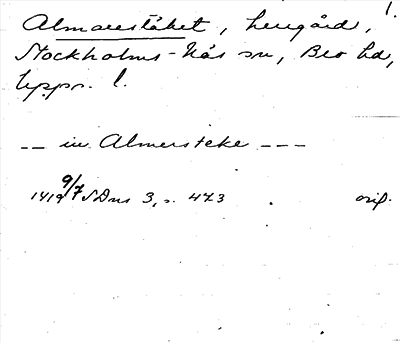 Almarestäket, herrgård, 1.
Stockholms-Näs sn, Bro hd,
Upps. l.
-- in Almersteke ---
1419 9/7 SDns 3, s. 473 orig.